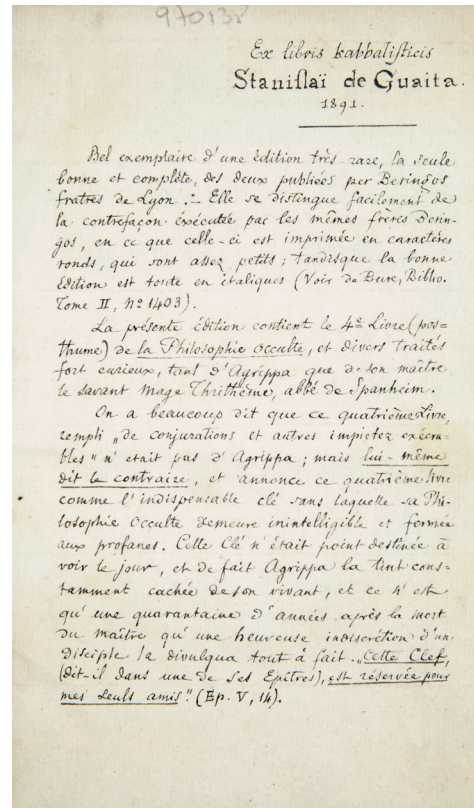 970138
Ex libris kabbalisticis
Stanislaï de Guaita.
1891.
Bel exemplaire d'une édition très-rare, la seule
bonne et complète, des deux publiées per Beringos
fratres de Lyon .– Elle se distingue facilement de
la contrefaçon éxécutée par les mêmes frères Berin-
gos, en ce que celle-ci est imprimée en caractères
ronds, qui sont assez petits ; tandisque la bonne
Edition est toute en italiques (Voir de Bure, Biblio.
Tome II, Nº 1403).
La présente édition contient le 4e Livre (pos-
thume) de la Philosophie occulte, et divers traités
fort curieux, tant d'Agrippa que de son maître
le savant mage Thrithème, abbé de Spanheim.
On a beaucoup dit que ce quatrième Livre,
rempli „de conjurations et autres impietez exécra-
bles" n'était pas d'Agrippa ; mais lui-même
dit le contraire, et annonce ce quatrième livre
comme l'indispensable clé sans laquelle sa Phi-
losophie Occulte demeure inintelligible et fermée
aux profanes. Cette Clé n'était point destinée à
voir le jour, et de fait Agrippa la tint cons=
tamment cachée de son vivant, et ce n'est
qu'une quarantaine d'années après la mort
du maître qu'une heureuse indiscrétion d'un
disciple la divulgua tout à fait. „Cette Clef,
(dit-il dans une de ses Epîtres), est réservée pour
mes seuls amis" (Ep. V, 14).